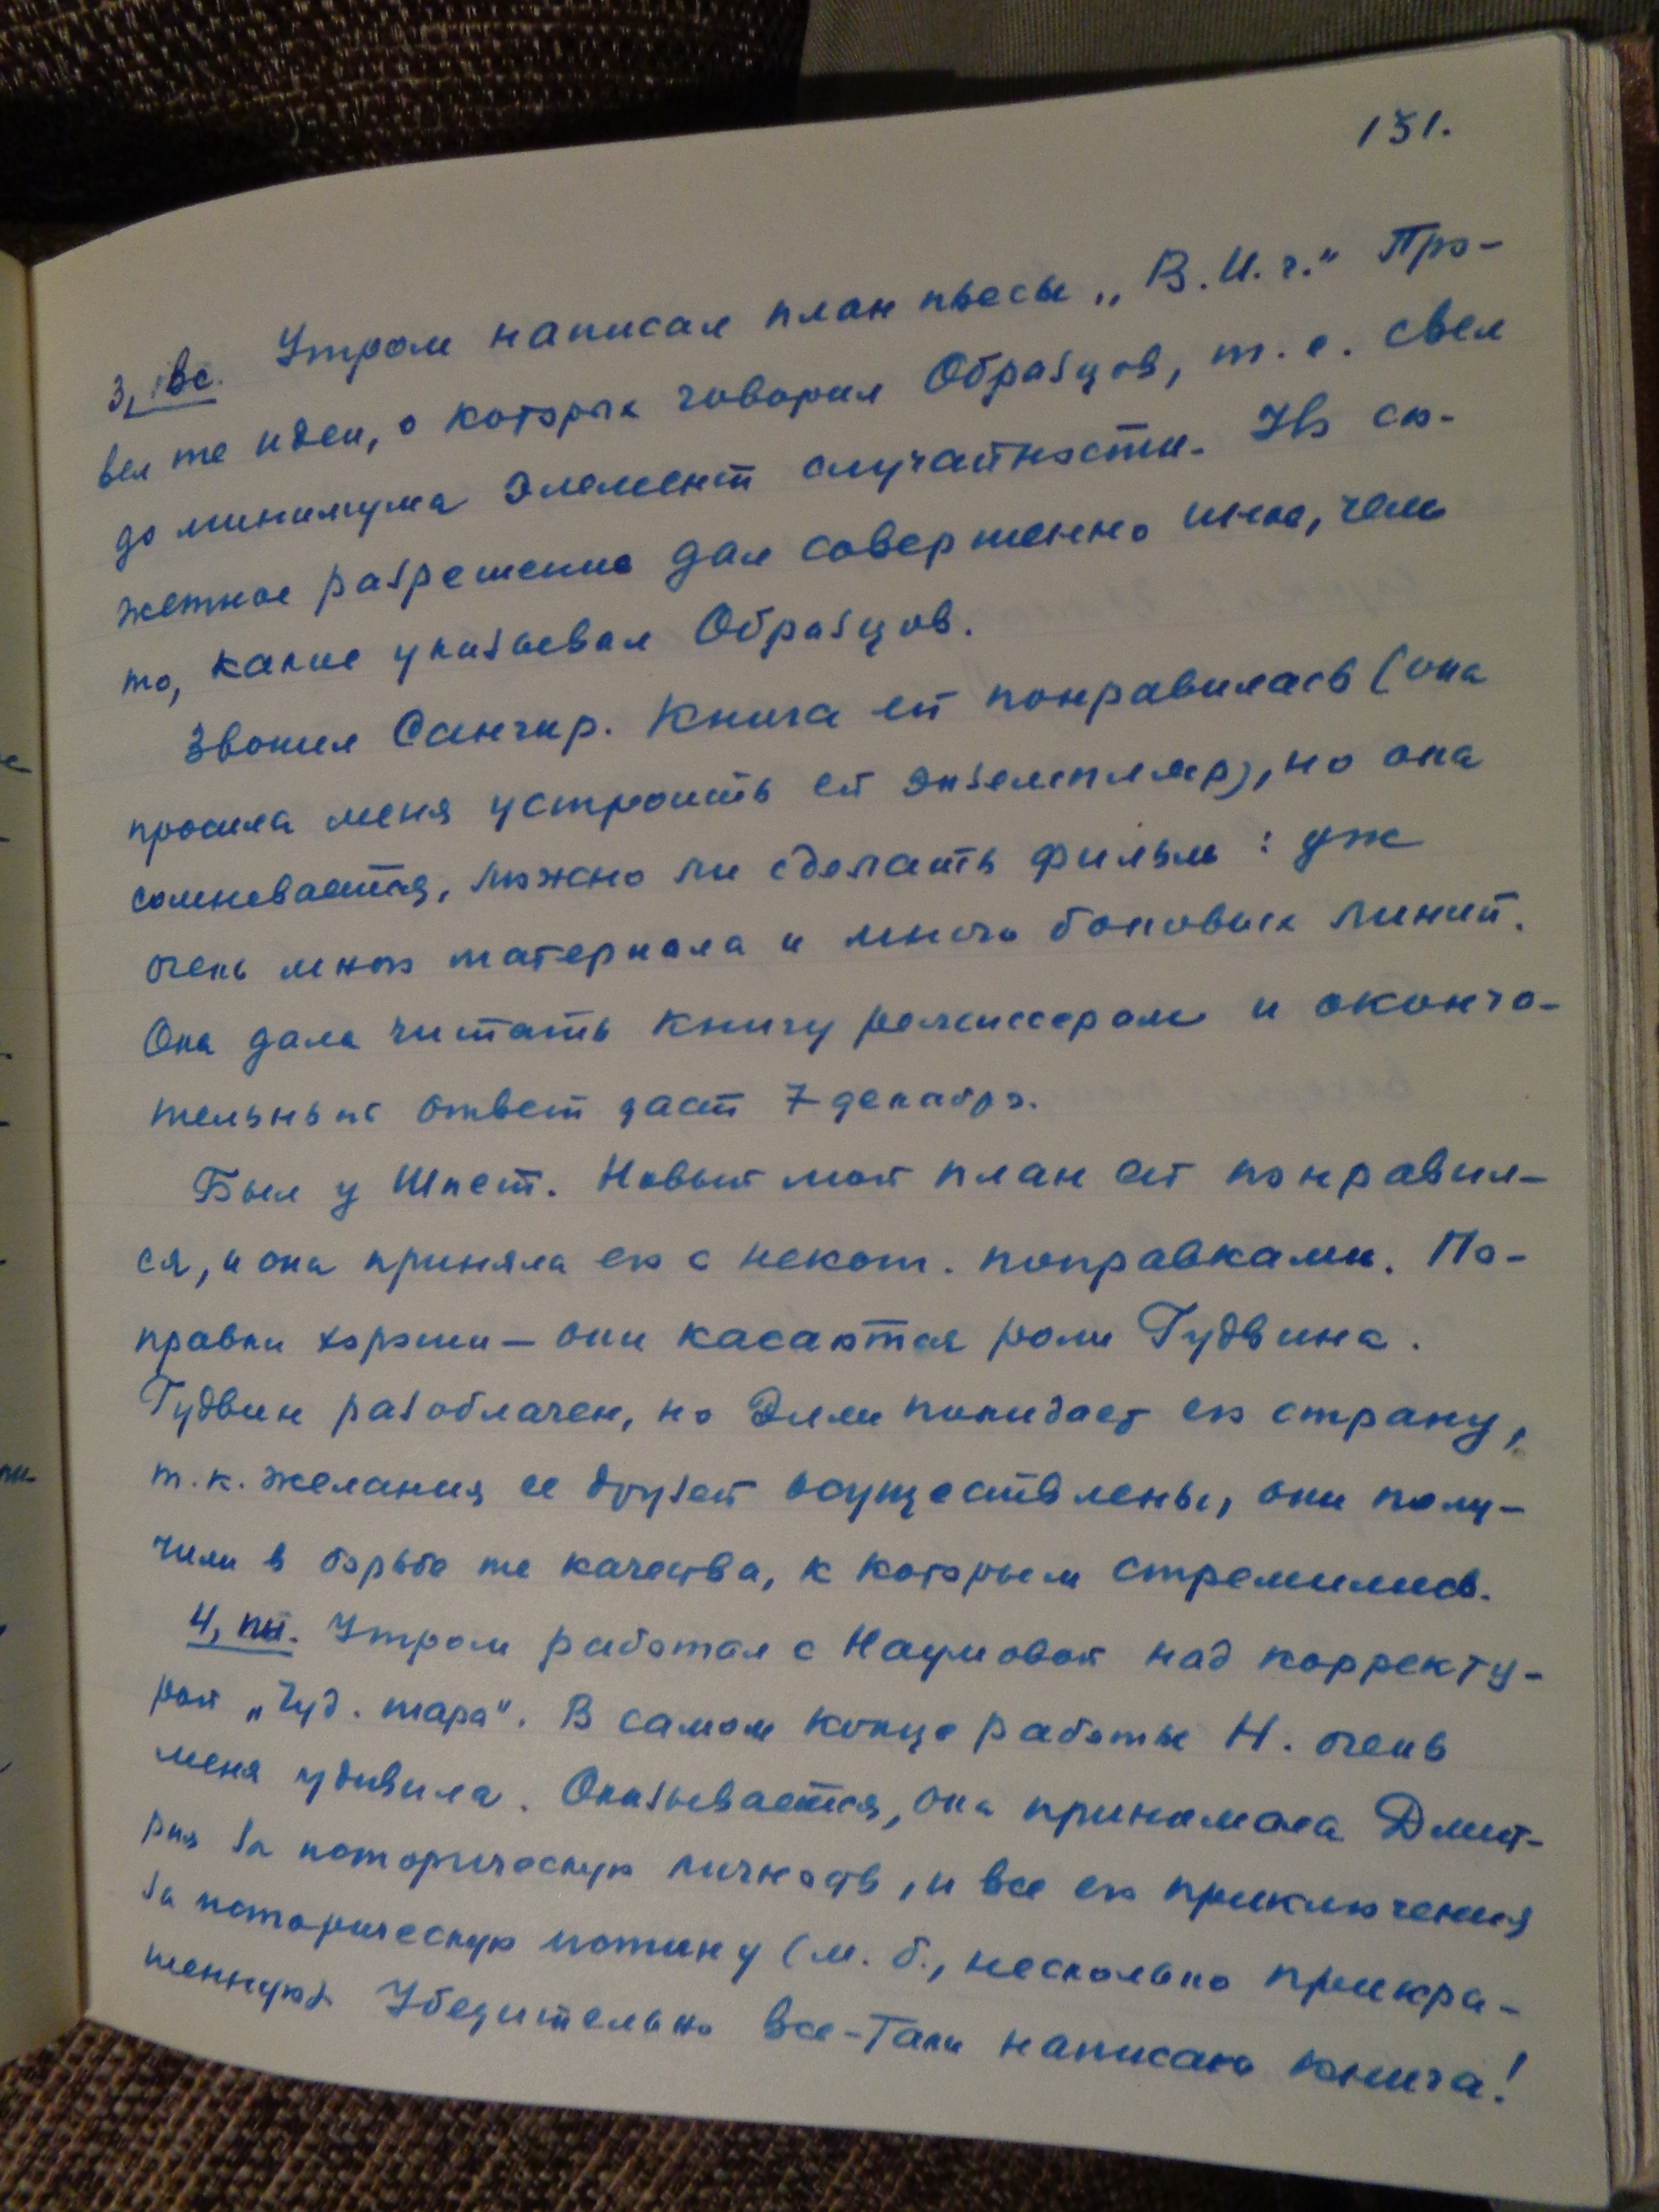 131.
3, вс. Утром написал план пьесы „В.И.г.“ Про-
вел те идеи, о которых говорил Образцов, т.е. свел
до минимума элемент случайности. Но сю-
жетное разрешение дал совершенно иное, чем
то, какие указывал Образцов.
Звонил Санчир. Книга ей понравилась (она
просила меня устроить ей экземпляр), но она
сомневается, можно ли сделать фильм: уж
очень много материала и много боковых линий.
Она дала читать книгу режиссерам и оконча-
тельный ответ даст 7 декабря.
Был у Шпет. Новый мой план ей понравил-
ся, и она приняла его с некот. поправками. По-
правки хороши — они касаются роли Гудвина.
Гудвин разоблачен, но Элли покидает его страну,
т.к. желания ее друзей осуществлены, они полу-
чили в борьбе те качества, к которым стремились.
4, пн. Утром работал с Наумовой над корректу-
рой „Чуд. шара“. В самом конце работы Н. очень
меня удивила. Оказывается, она принимала Дмит-
рия за историческую личность, и все его приключения
за историческую истину (м.б., несколько прикра-
шенную). Убедительно все-таки написана книга!